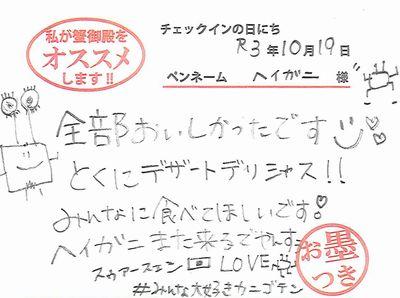 私が蟹御殿を
オススメ
します!!
チェックインの日にち
R3年10月19日
ペンネーム ヘイガニ 様
全部おいしかったです
とくにデザートデリシャス!!
みんなに食べてほしいです!
ヘイガニまた来るでやんす
LOVE
#みんな大好きカニゴテン
お墨つき